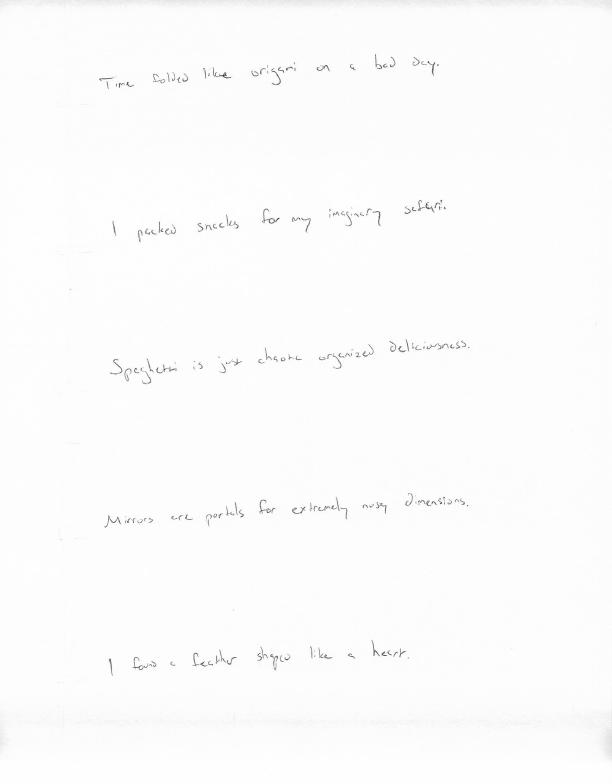 Time folded like origami on a bad day.
I packed snacks for my imaginary safari.
Spaghetti is just chaotic organized deliciousness.
Mirrors are portals for extremely nosy dimensions.
I found a feather shaped like a heart.